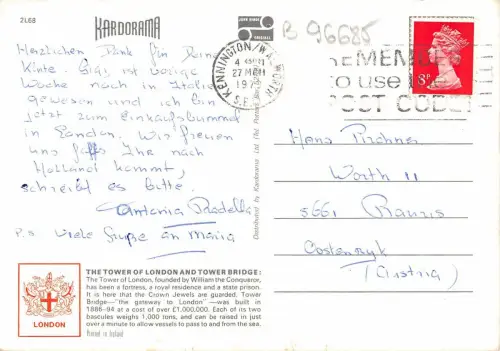 2L68
KARDORAMA
Herzlichen Dank für Deine
Kinte. Gigi ist vorige
Woche noch in Italien
gewesen und ich bin
jetzt zum Einkaufsbummel
in London. Wir freuen
uns falls Ihr nach
Holland kommt,
schreibt es bitte.
Antonia
P.S. Viele Grüße an Maria
THE TOWER OF LONDON AND TOWER BRIDGE:
The Tower of London, founded by William the Conqueror,
has been a fortress, a royal residence and a state prison.
It is here that the Crown Jewels are guarded. Tower
Bridge—"the gateway to London"—was built in
1886-94 at a cost of over £1,000,000. Each of its two
bascules weighs 1,000 tons, and can be raised in just
over a minute to allow vessels to pass to and from the sea.
Printed in Ireland
LONDON
Distributed by Kardorama Ltd. (The Picture
B 96685
KENNINGTON/WALWORTH
27 MCH
S.E.
REMEMBER
to use
POST CODE
8P
Hans Pirchner
Worth 11
5661 Rauris
Oostenryk
(Austria)